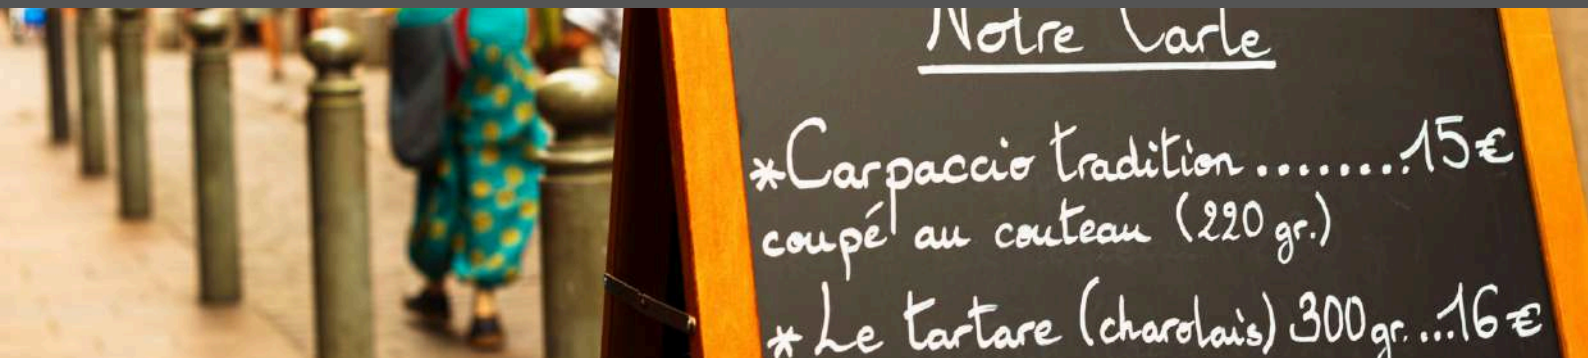 Notre Carte
*Carpaccio tradition ........15€
coupé au couteau (220 gr.)
* Le tartare (charolais) 300gr...16€